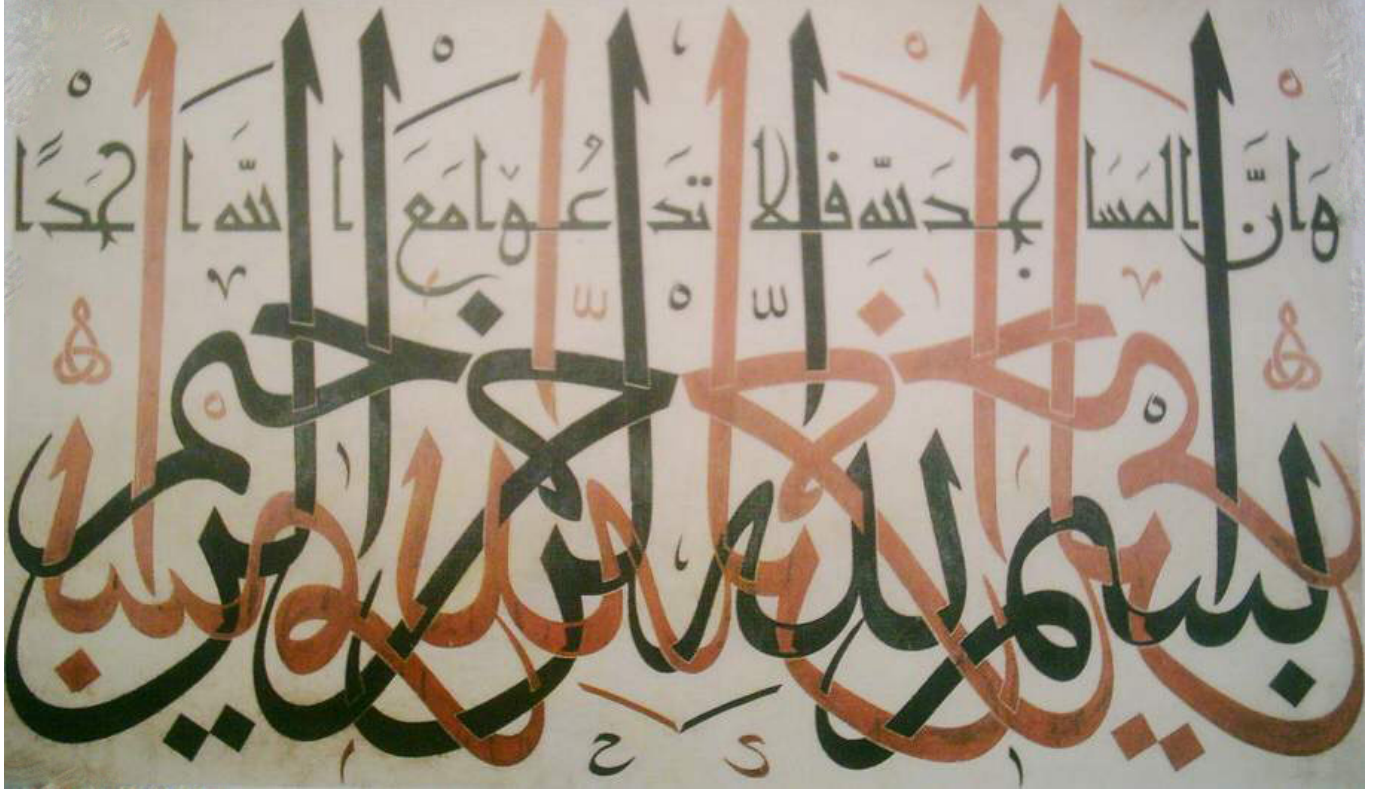 وَاَنَّ المَسَاجِدَ لِلّٰه فَلا تَدْعُوا مَعَ اللّٰه اَحَدًا
بسم الله الرحمن الرحيم